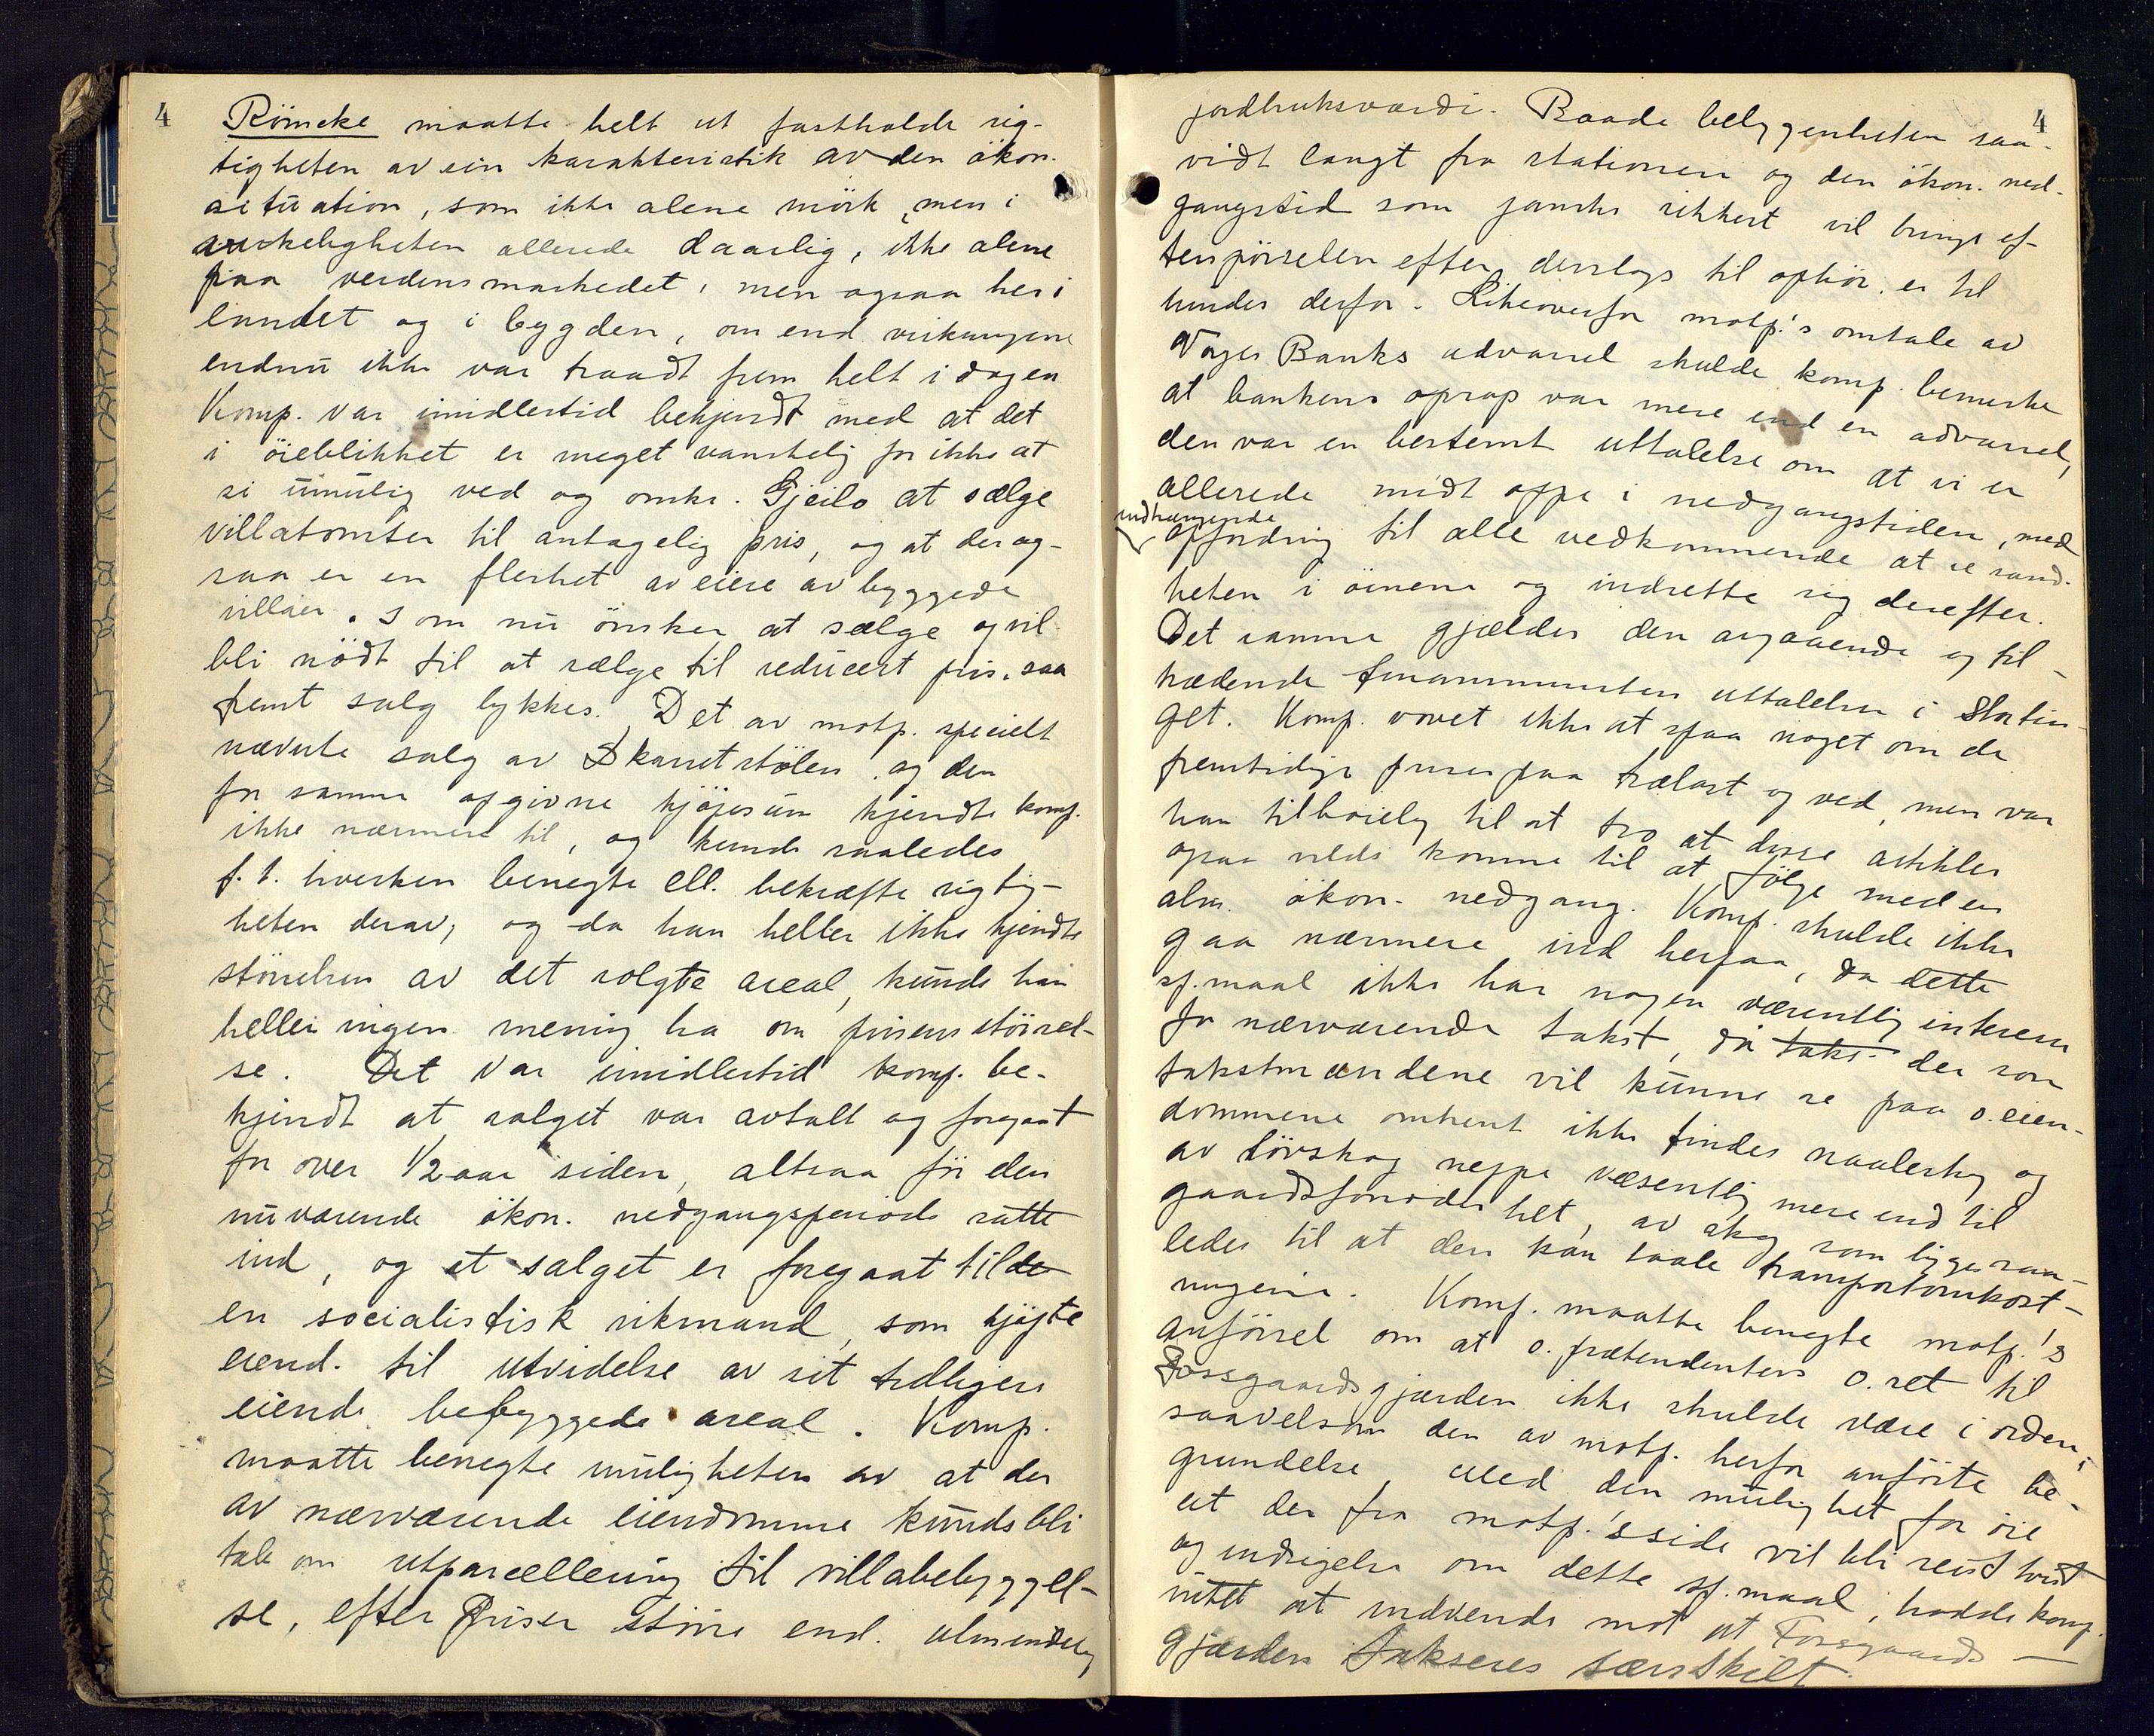 4
Römcke maatte helt ut fastholde rig-
tigheten av sin karakteristik av den ökon.
situation, som ikke alene mörk, men i
virkeligheten allerede daarlig, ikke alene
paa verdensmarkedet, men ogsaa her i
landet og i bygden, om end virkningene
endnu ikke var traadt frem helt i dagen
Komp. var imidlertid bekjendt med at det
i öieblikket er meget vanskelig for ikke at
si umulig ved og omkr. Gjeilo at sælge
villatomter til antagelig pris, og at der og-
saa er en flerhet av eiere av byggede
villaer. som nu önsker at sælge og vil
bli nödt til at sælge til reducert pris, saa
fremt salg lykkes. Det av motp. specielt
nævnte salg av Skarretstölen, og den
for samme opgivne kjöpesum kjendte komp.
ikke nærmere til, og kunde saaledes
f. t. hverken benegte ell. bekræfte rigtig-
heten derav; og da han heller ikke kjendte
störrelsen av det solgte areal, kunde han
heller ingen mening ha om prisens störrel-
se. Det var imidlertid komp. be-
kjendt at salget var avtalt og foregaat
for over 1/2 aar siden, altsaa för den
nuværende ökon. nedgangsperiode satte
ind, og at salget er foregaat til de
en socialistisk rikmand, som kjöpte
eiend. til utvidelse av sit tidligere
eiende bebyggede areal. Komp.
maatte benegte muligheten av at der
av nærværende eiendomme kunde bli
tale om utparcellering til villabebyggel-
se, efter priser större end. almindelig
4
jordbruksværdi. Baade beliggenheten saa-
vidt langt fra stationen og den ökon. ned-
gangstid som ganske sikkert vil bringe ef-
terspörselen efter denslags til ophör, er til
hinder derfor. Likeoverfor motp.'s omtale av
Norges Banks advarsel skulde komp. bemerke
at bankens oprop var mere end en advarsel,
den var en bestemt uttalelse om at vi er
allerede midt oppe i nedgangstiden, med
indtrængende
opfordring til alle vedkommende at se sand-
heten i öinene og indrette sig derefter.
Det samme gjælder den avgaaende og til-
trædende finansministers uttalelser i Stortin-
get. Komp. vovet ikke at spaa noget om de
fremtidige priser paa trælast og ved, men var
han tilböielig til at tro at disse artikler
ogsaa vilde komme til at fölge med en
alm. ökon. nedgang. Komp. skulde ikke
gaa nærmere ind herpaa, da dette
sp.maal ikke har nogen væsentlig interesse
for nærværende takst, da takst- der som
takstmændene vil kunne se paa o. eien-
dommene omtrent ikke findes naaleskog og
av lövskog neppe væsentlig mere end til
gaardsfornödenhet, av skog som ligger saa-
ledes til at den kan taale transportomkost-
ningene. Komp. maatte benegte motp.'s
anförsel om at o. prætendenters o. ret til
Fossgaardsgjærden ikke skulde være i orden,
saavelsom den av motp. herfor anförte be-
grundelse. Med den mulighet for öie
at der fra motp.'s side vil bli reist tvist
og indsigelse om dette sp.maal, hadde komp.
intet at indvende mot at Fossgaards-
gjærden takseres særskilt.